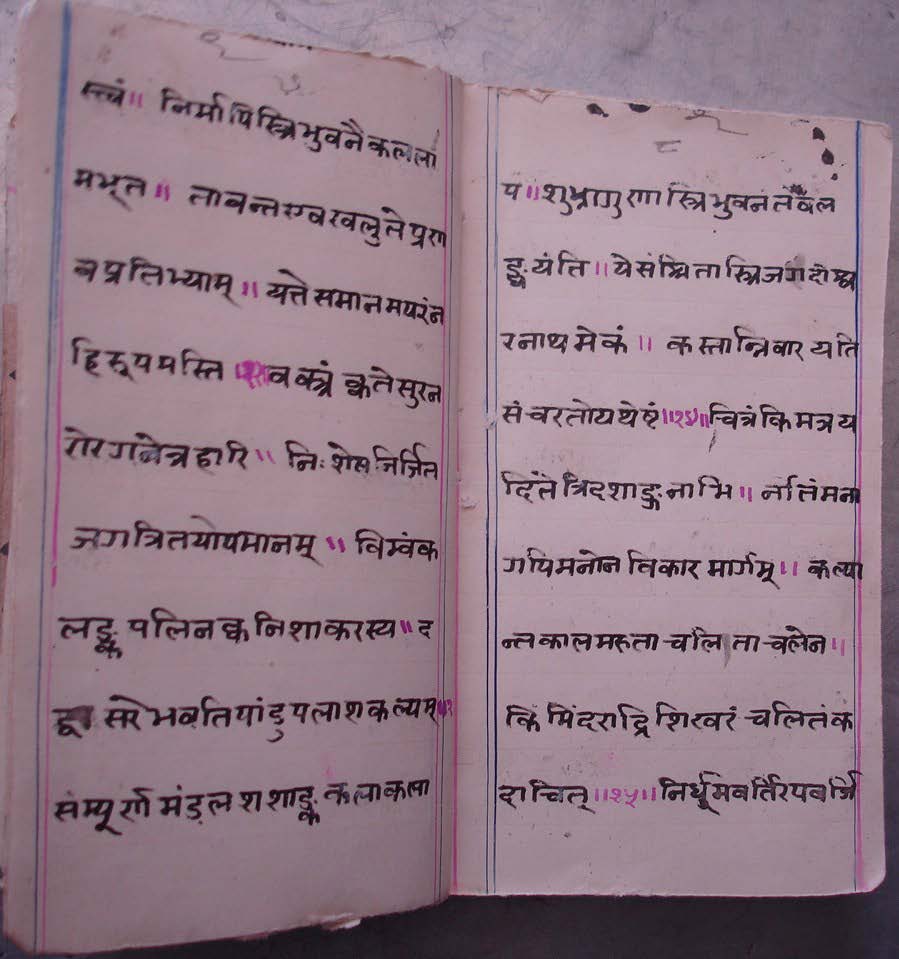 स्त्वं॥ निर्मापिस्त्रिभुवनैकलला
मभूत॥ तावन्तएवरवलुतेप्रण
वप्रतिभ्याम्॥ यत्तेसमानमपरंन
हिरूपमस्ति वक्त्रं क्वतेसुरन
रोरगनेत्रहारि॥ निःशेसनिर्जित
जगत्रितयोपमानम्॥ विम्वंक
लङ्कपलिनक्वनिशाकरस्य॥द
सरेभवतिपांडुपलाशकल्पम्
संम्पूर्णमंडलशशाङ्ककलाकला
प॥शुभ्रागुणास्त्रिभुवनंतवल
ङ्घयंति॥येसंश्रितास्त्रिजगदीश्व
रनाथमेकं॥ कस्तान्निवारयति
संचरतोयथेष्टं॥१४॥चित्रंकिमत्रय
दितेत्रिदशाङ्गनाभि॥ र्नातंमना
गपिमनोनविकारमार्गम्॥ कल्पा
न्तकालमरुताचलिताचलेन॥
किंमिंदराद्रिशिरवरंचलितंक
दाचित्॥१५॥निर्धूमवर्तिरपवर्जि